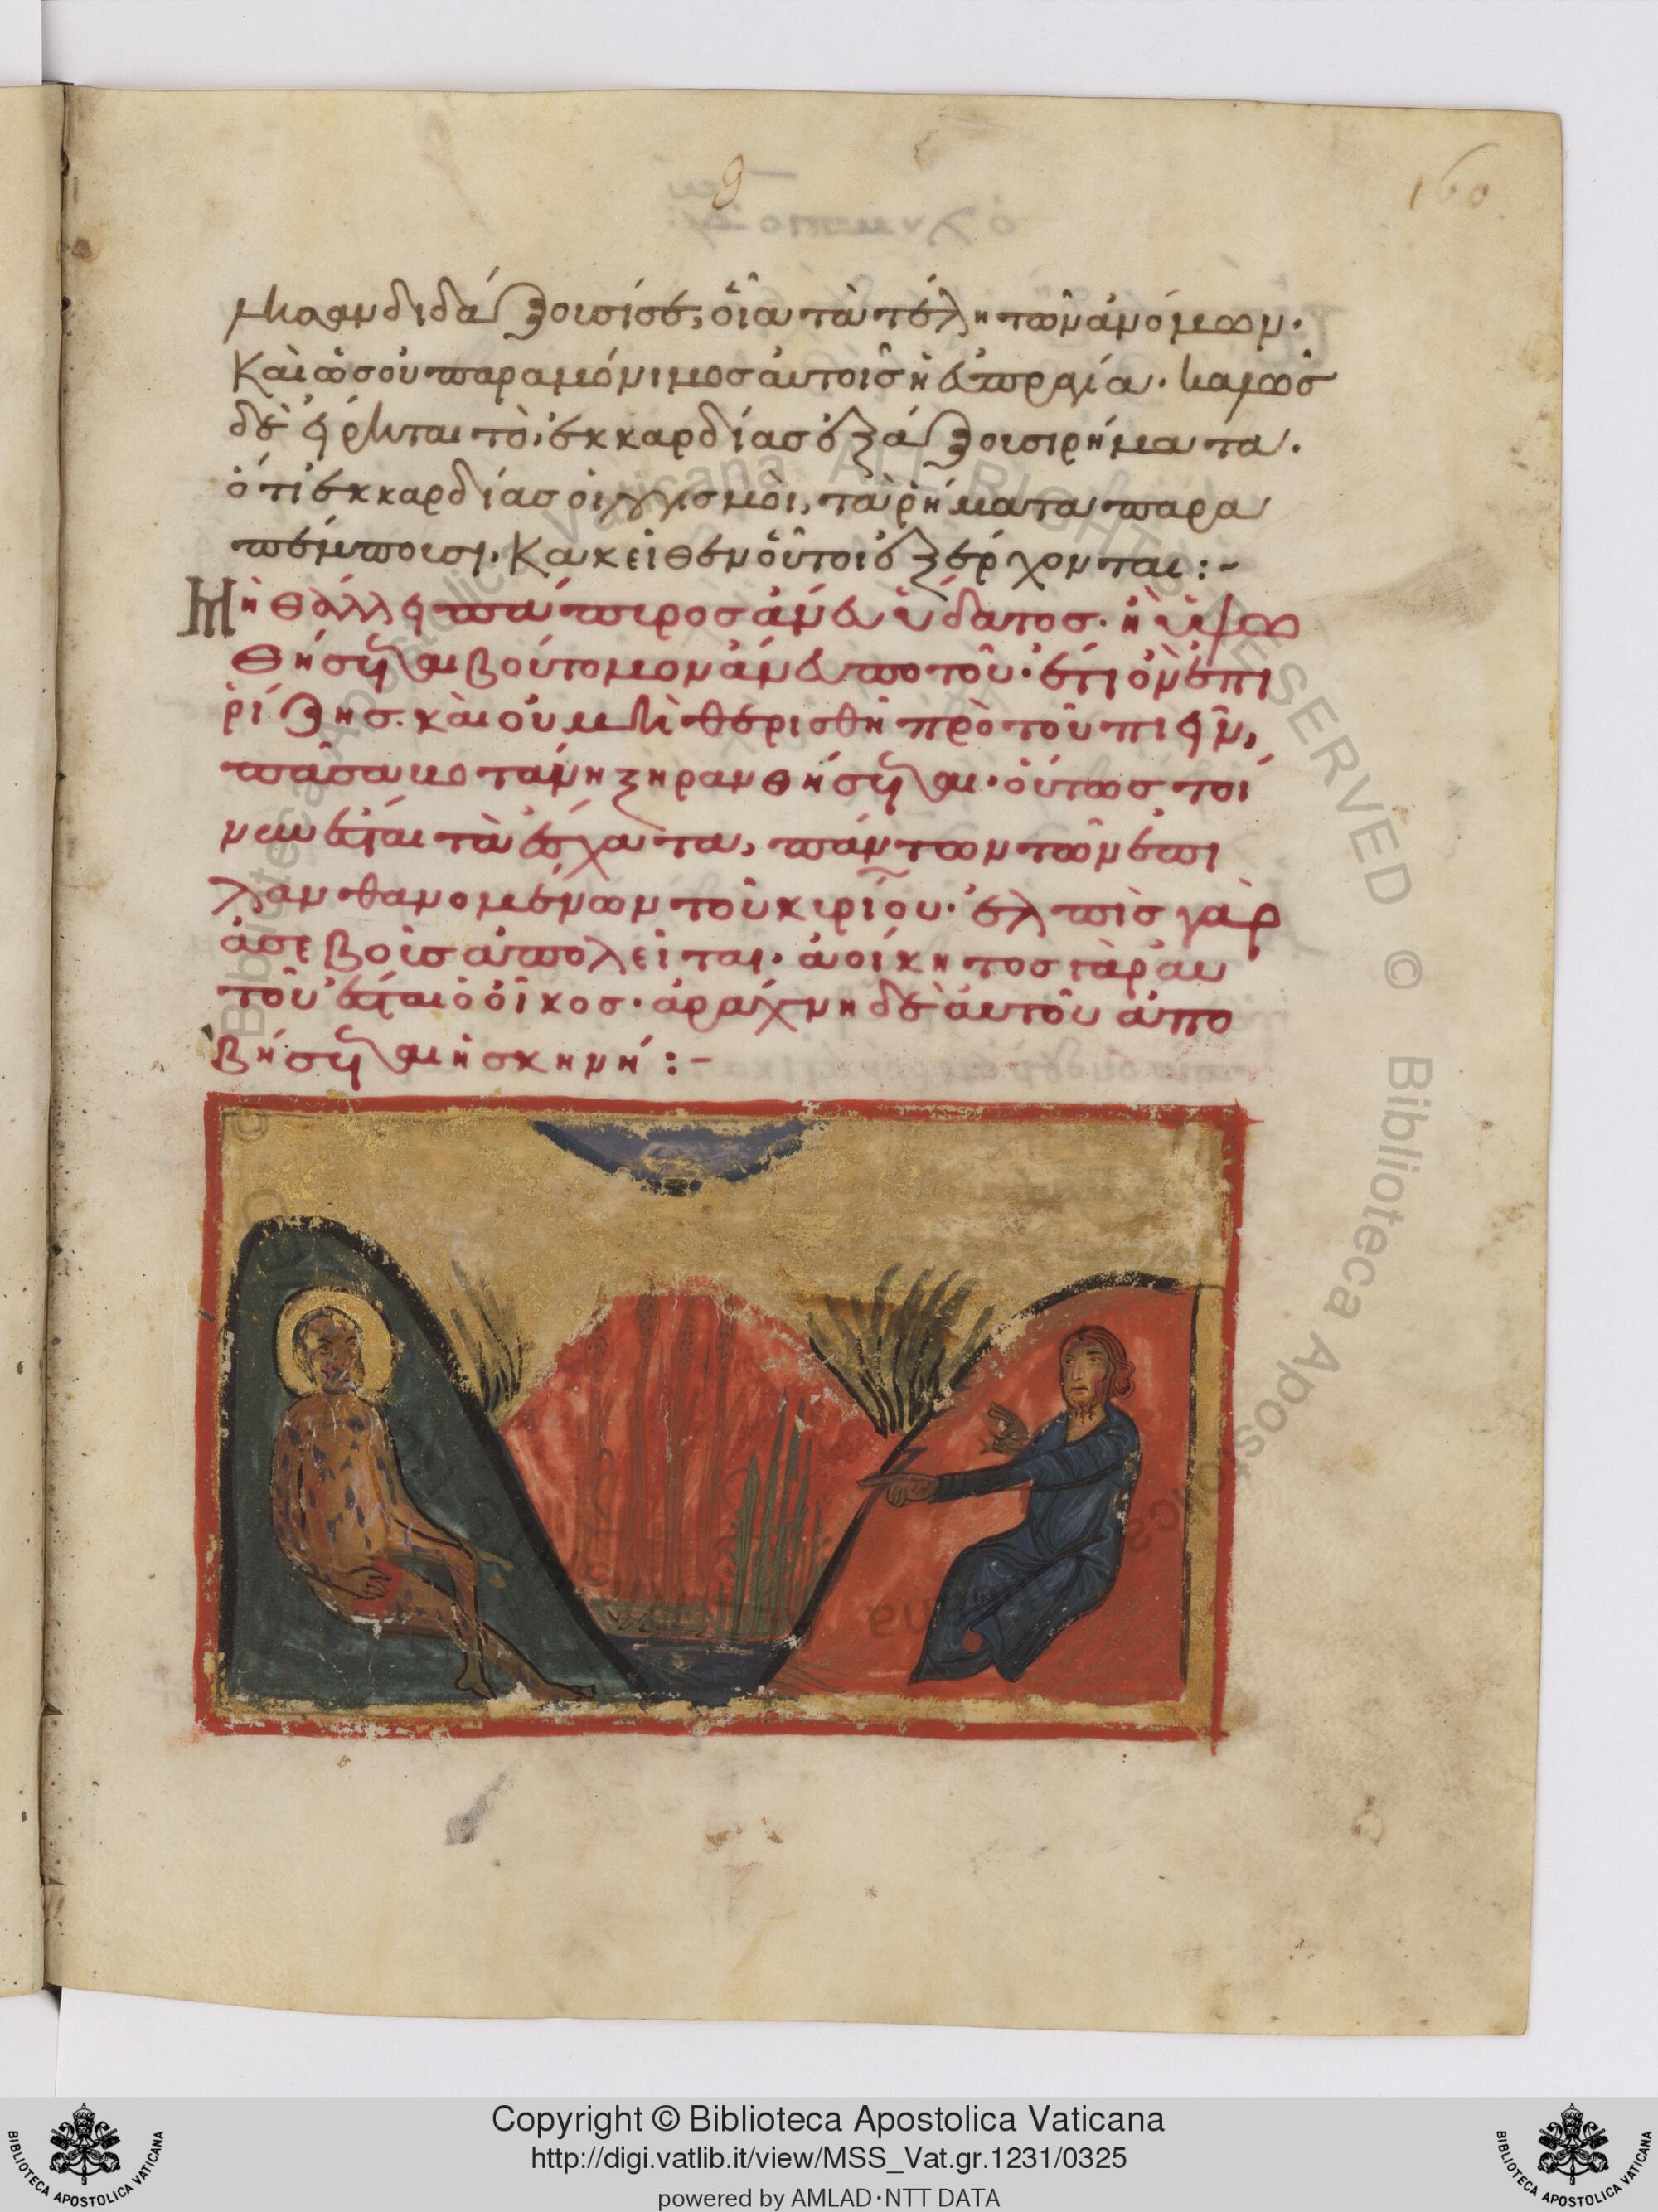 160
μὴ διδάξουσί σε, οἷα τὰ τέλη τῶν ἀνόμων·
Καὶ ὡς οὐ παραμόνιμος αὐτοῖς ἡ εὐπραγία· καλῶς
δὲ εἴρηται τὸ, ἐκ καρδίας ἐξάξουσι ῥήματα·
ὅτι ἐκ καρδίας οἱ λογισμοὶ, τὰ ῥήματα παρα
πέμπουσι· Κακεῖθεν οὗτοι ἐξέρχονται:-
Μὴ θάλλει πάπυρος ἄνευ ὕδατος· ἢ ὑψω
θήσεται βούτομον ἄνευ ποτοῦ· ἔτι ὂν ἐπὶ
ῥίζης· καὶ οὐ μὴ θερισθῆ πρὸ τοῦ πιεῖν,
πᾶσα βοτάνη ξηρανθήσεται· οὕτως τοί
νυν ἔσται τὰ ἔσχατα, πάντων τῶν ἐπι
λανθανομένων τοῦ κυρίου· ἐλπὶς γὰρ
ἀσεβοῦς ἀπολεῖται· ἀοίκητος γὰρ αυ
τοῦ ἔσται ὁ οἶκος· ἀράχνη δὲ αὐτοῦ ἀπο
βήσεται ἡ σκηνή:-
Copyright © Biblioteca Apostolica Vaticana
http://digi.vatlib.it/view/MSS_Vat.gr.1231/0325
powered by AMLAD·NTT DATA
BIBLIOTECA APOSTOLICA VATICANA
BIBLIOTECA APOSTOLICA VATICANA